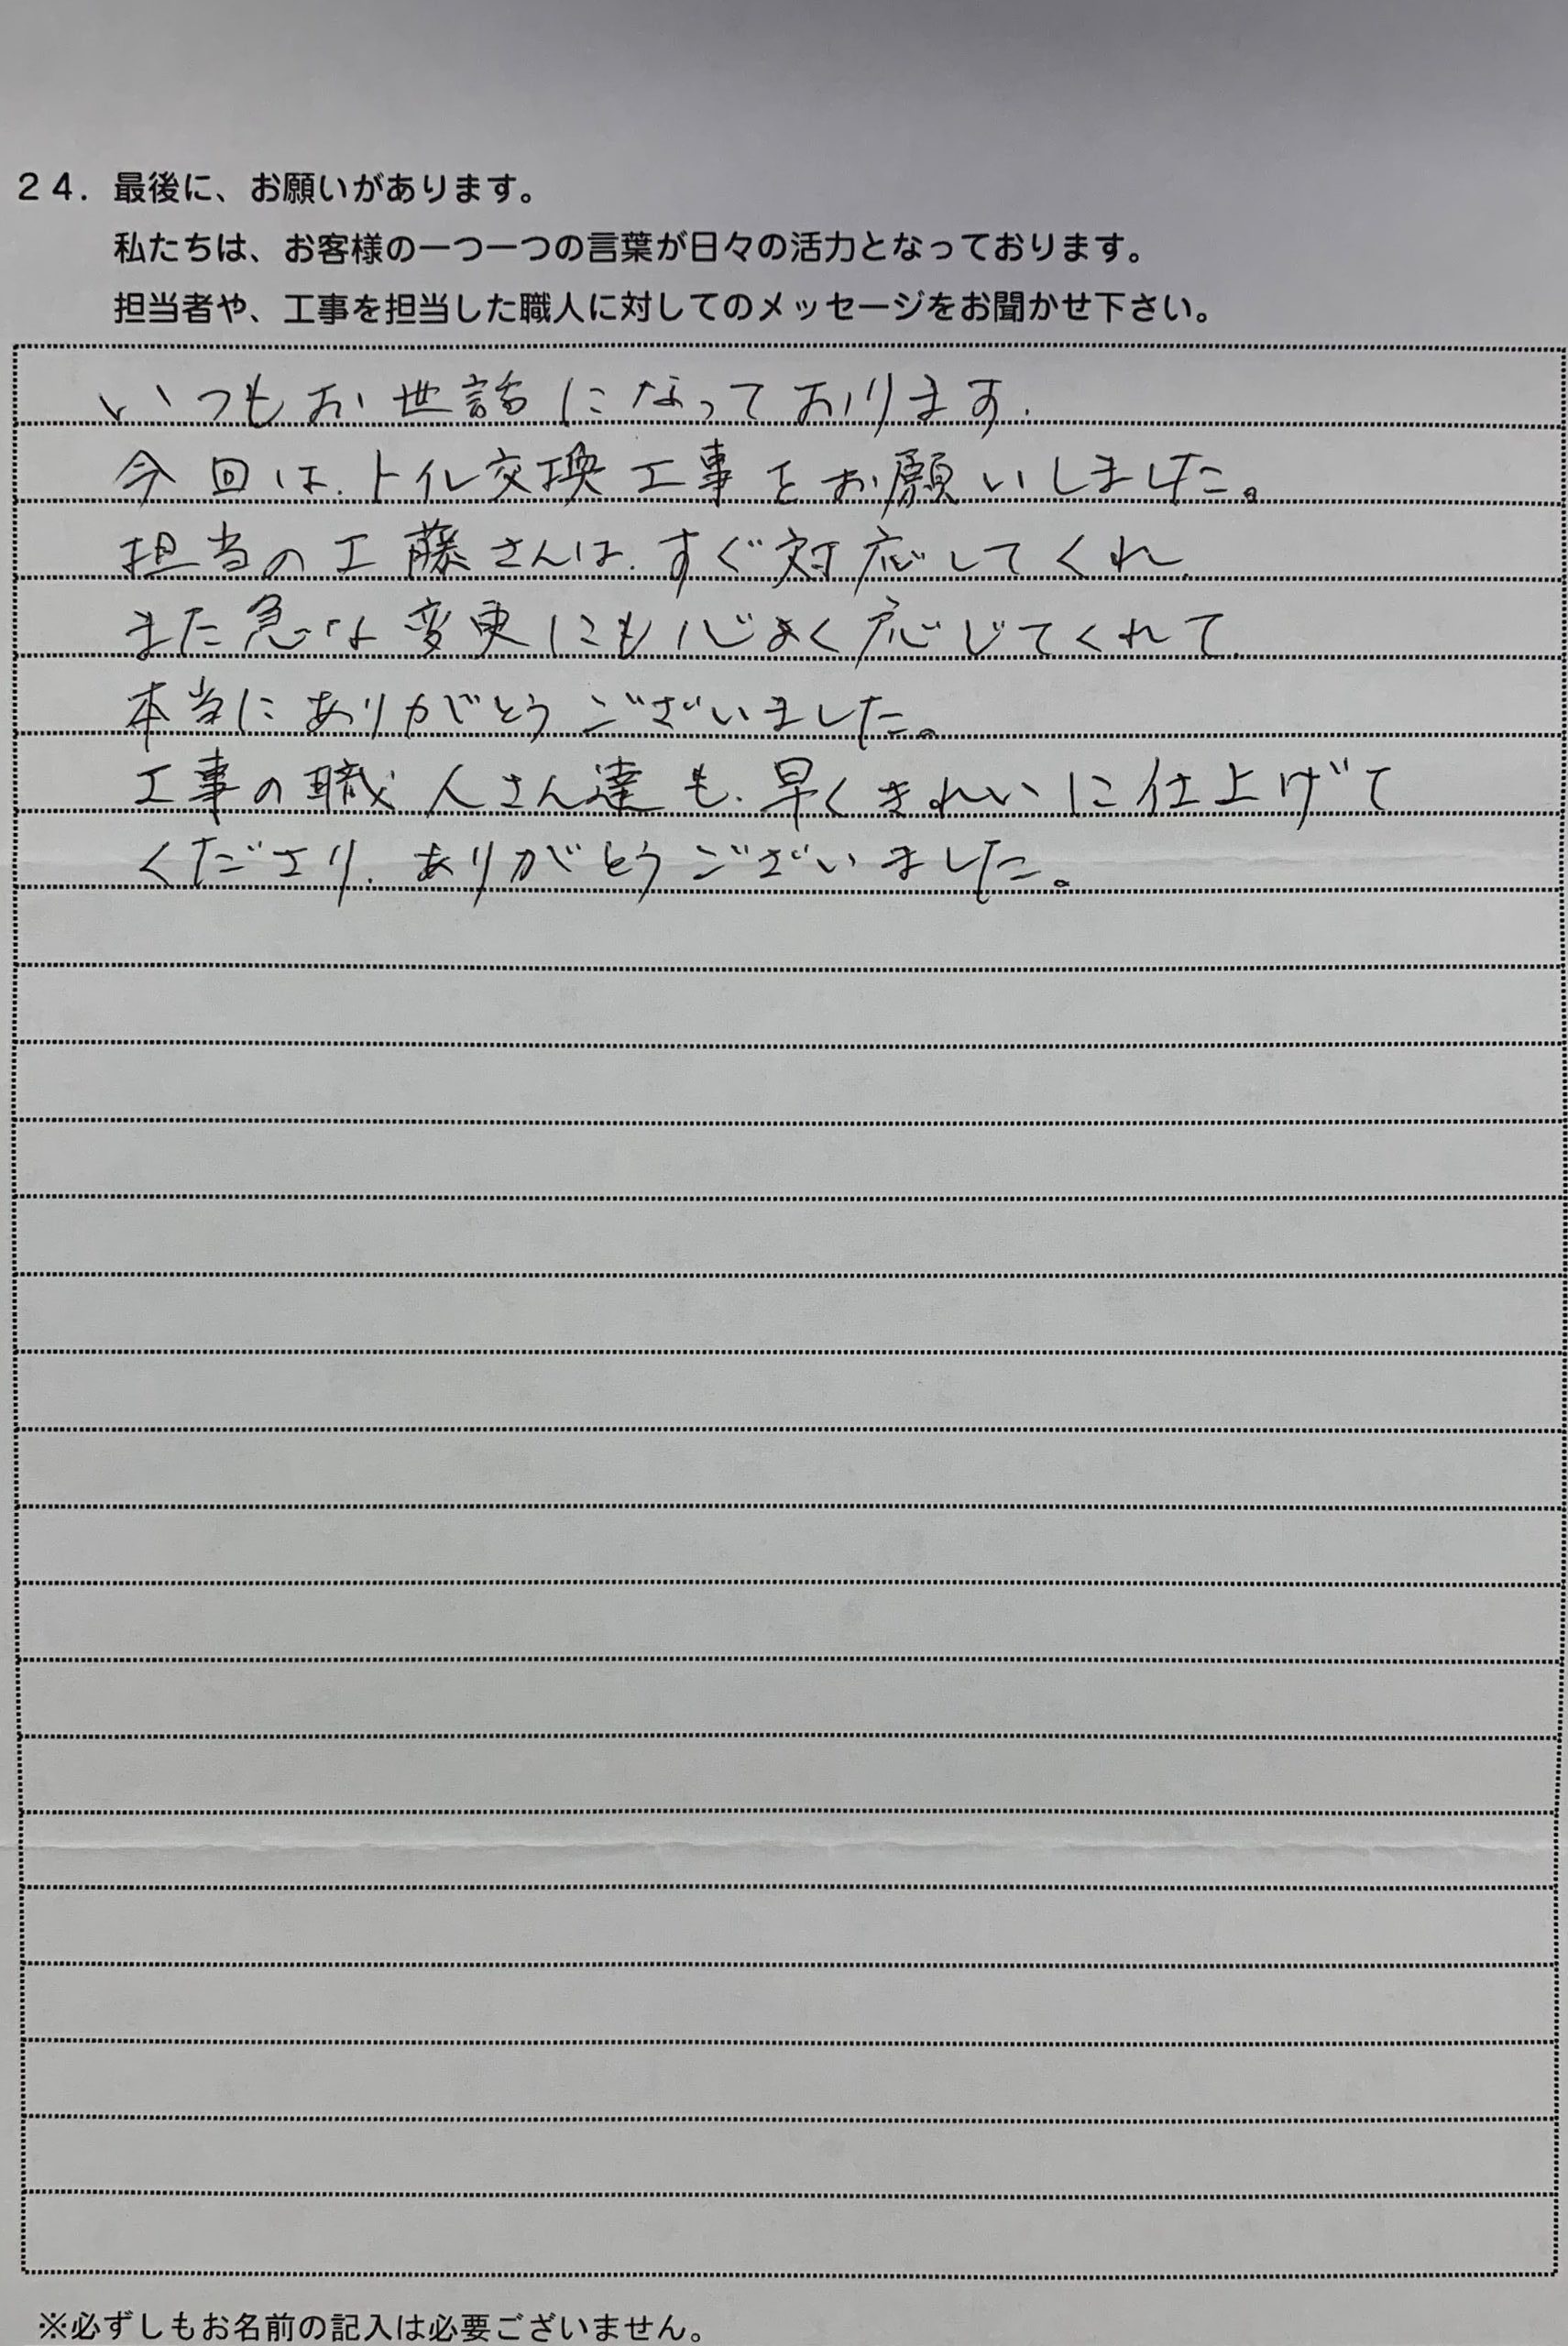 24. 最後に、お願いがあります。
私たちは、お客様の一つ一つの言葉が日々の活力となっております。
担当者や、工事を担当した職人に対してのメッセージをお聞かせ下さい。
いつもお世話になっております.
今回は、トイレ交換工事をお願いしました。
担当の工藤さんは、すぐ対応してくれ、
また急な変更にも心よく応じてくれて、
本当にありがとうございました。
工事の職人さん達も、早くきれいに仕上げて
くださり、ありがとうございました。
※必ずしもお名前の記入は必要ございません。